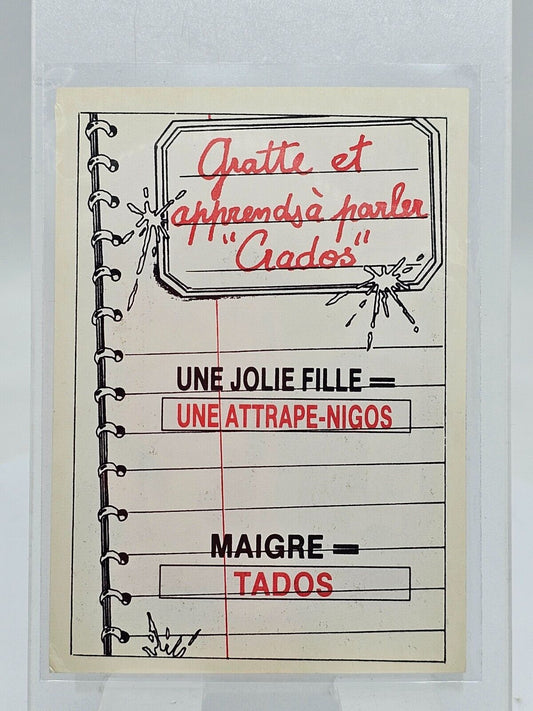 Gratte et
apprends à parler
"Crados"
UNE JOLIE FILLE =
UNE ATTRAPE-NIGOS
MAIGRE =
TADOS